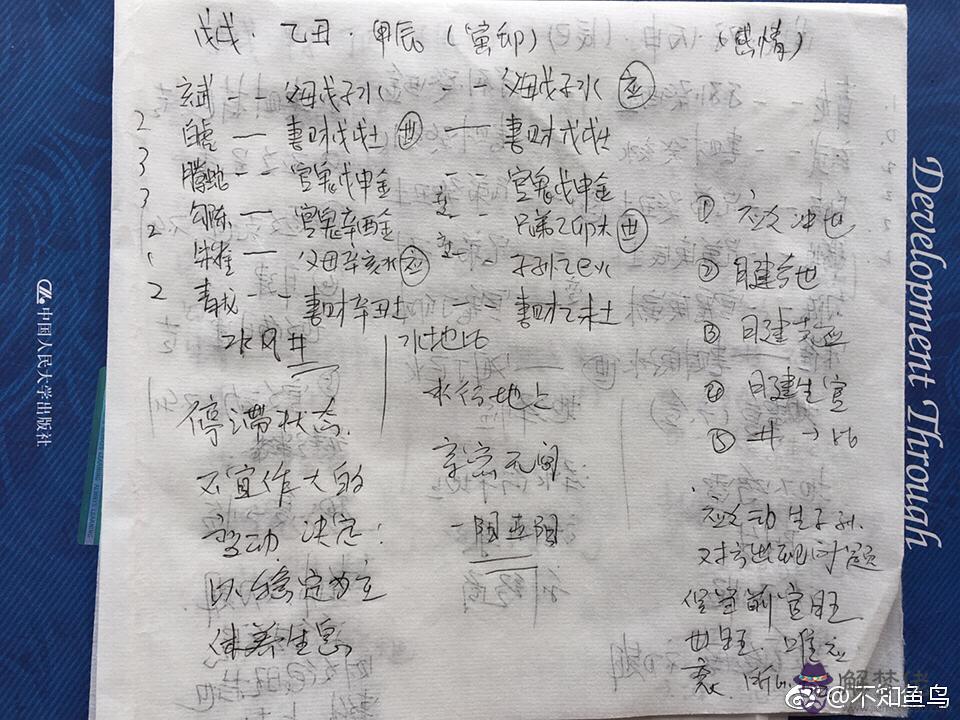 戊戌·乙丑·甲辰(寅卯) (感情)
玄武 -- 父母戊子水 -- 父母戊子水 应
2 白虎 — 妻财戊戌土 世 — 妻财戊戌土
3 腾蛇 -- 官鬼戊申金 -- 官鬼戊申金
3 勾陈 — 官鬼辛酉金 -- 兄弟乙卯木 世
2 朱雀 — 父母辛亥水 应 -- 子孙乙巳火
2 青戌 -- 妻财辛丑土 -- 妻财乙未土
水风井 水地比
停滞状态.
不宜作大的
变动 决定:
以稳定为主
休养生息
水行地上
亲密无间
一阳五阴
① 应爻冲世
② 日建合世
③ 日建克应
④ 日建生官
⑤ 井→比
应爻动生子孙.
对方出现问题
但当前官旺
世旺. 唯应
衰.
中国人民大学出版社
Development Through
解梦佬
@不知鱼鸟